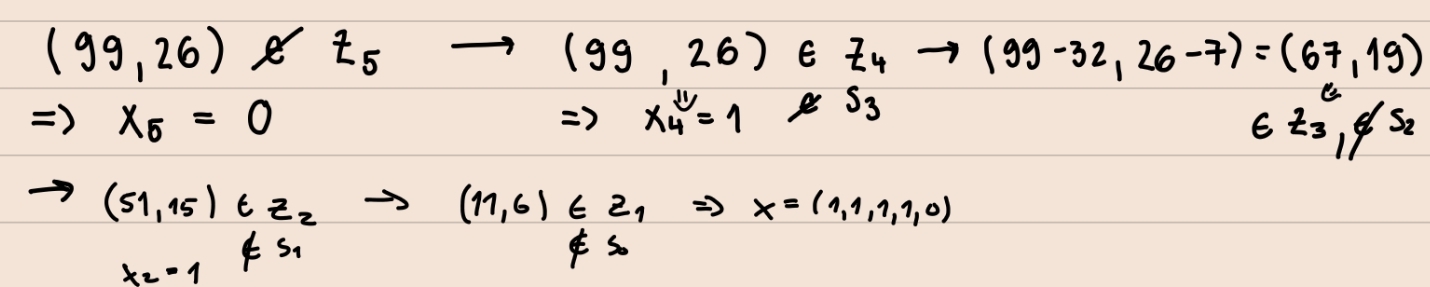 (99,26) ∉ Z₅ → (99,26) ∈ Z₄ → (99-32, 26-7) = (67,19)
=> X₅ = 0 => X₄ = 1 ∉ S₃ ∈ Z₃, ∉ S₂
→ (51,15) ∈ Z₂ → (11,6) ∈ Z₁ => x = (1,1,1,1,0)
∉ S₁ ∉ S₀
x₂ = 1